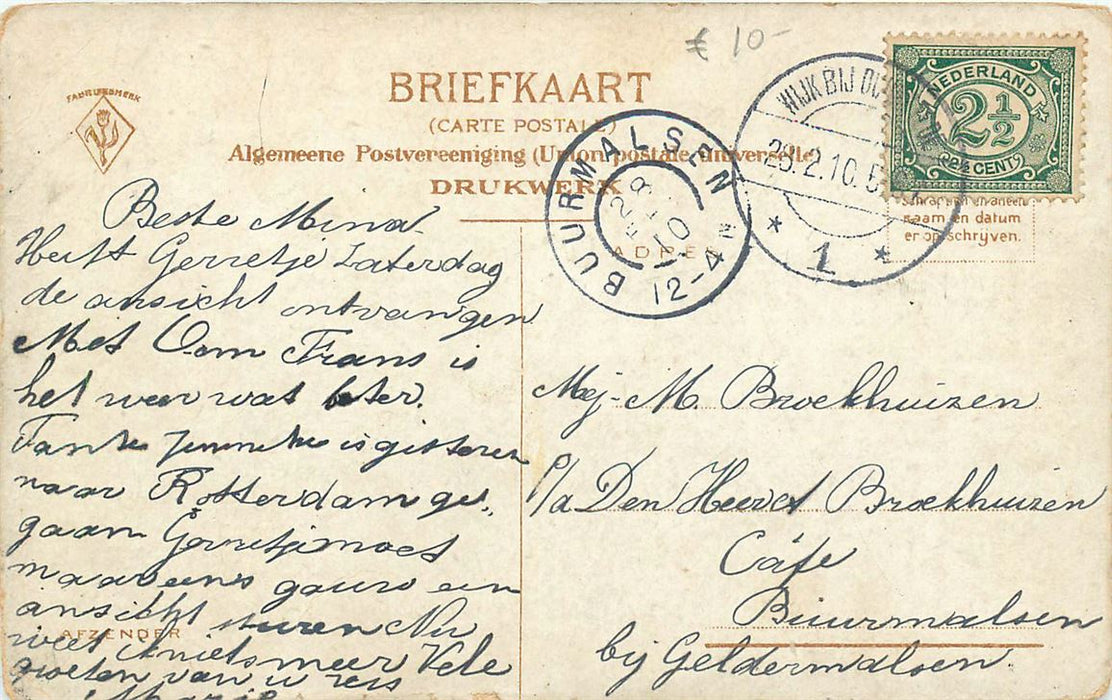 € 10-
FABRIEKSMERK
BRIEFKAART
(CARTE POSTALE)
Algemeene Postvereeniging (Union postale universelle)
DRUKWERK
WIJK BIJ DU
28.2.10.
* 1 *
BUURMALSEN
28
10
12-4 N
NEDERLAND
2½
2½ CENT
naam en datum
er op schrijven.
ADRES
Beste Mina
Heeft Gerretje Zaterdag
de ansicht ontvangen
Met Oom Frans is
het weer wat beter.
Tante is gisteren
naar Rotterdam ge-
gaan Gerretje moet
maar eens gauw een
ansicht sturen Nu
AFZENDER
weet ik niets meer Vele
groeten van u
Mej. M. Broekhuizen
P/a Den Heer Ct Broekhuizen
Cáfe
Buurmalsen
bij Geldermalsen